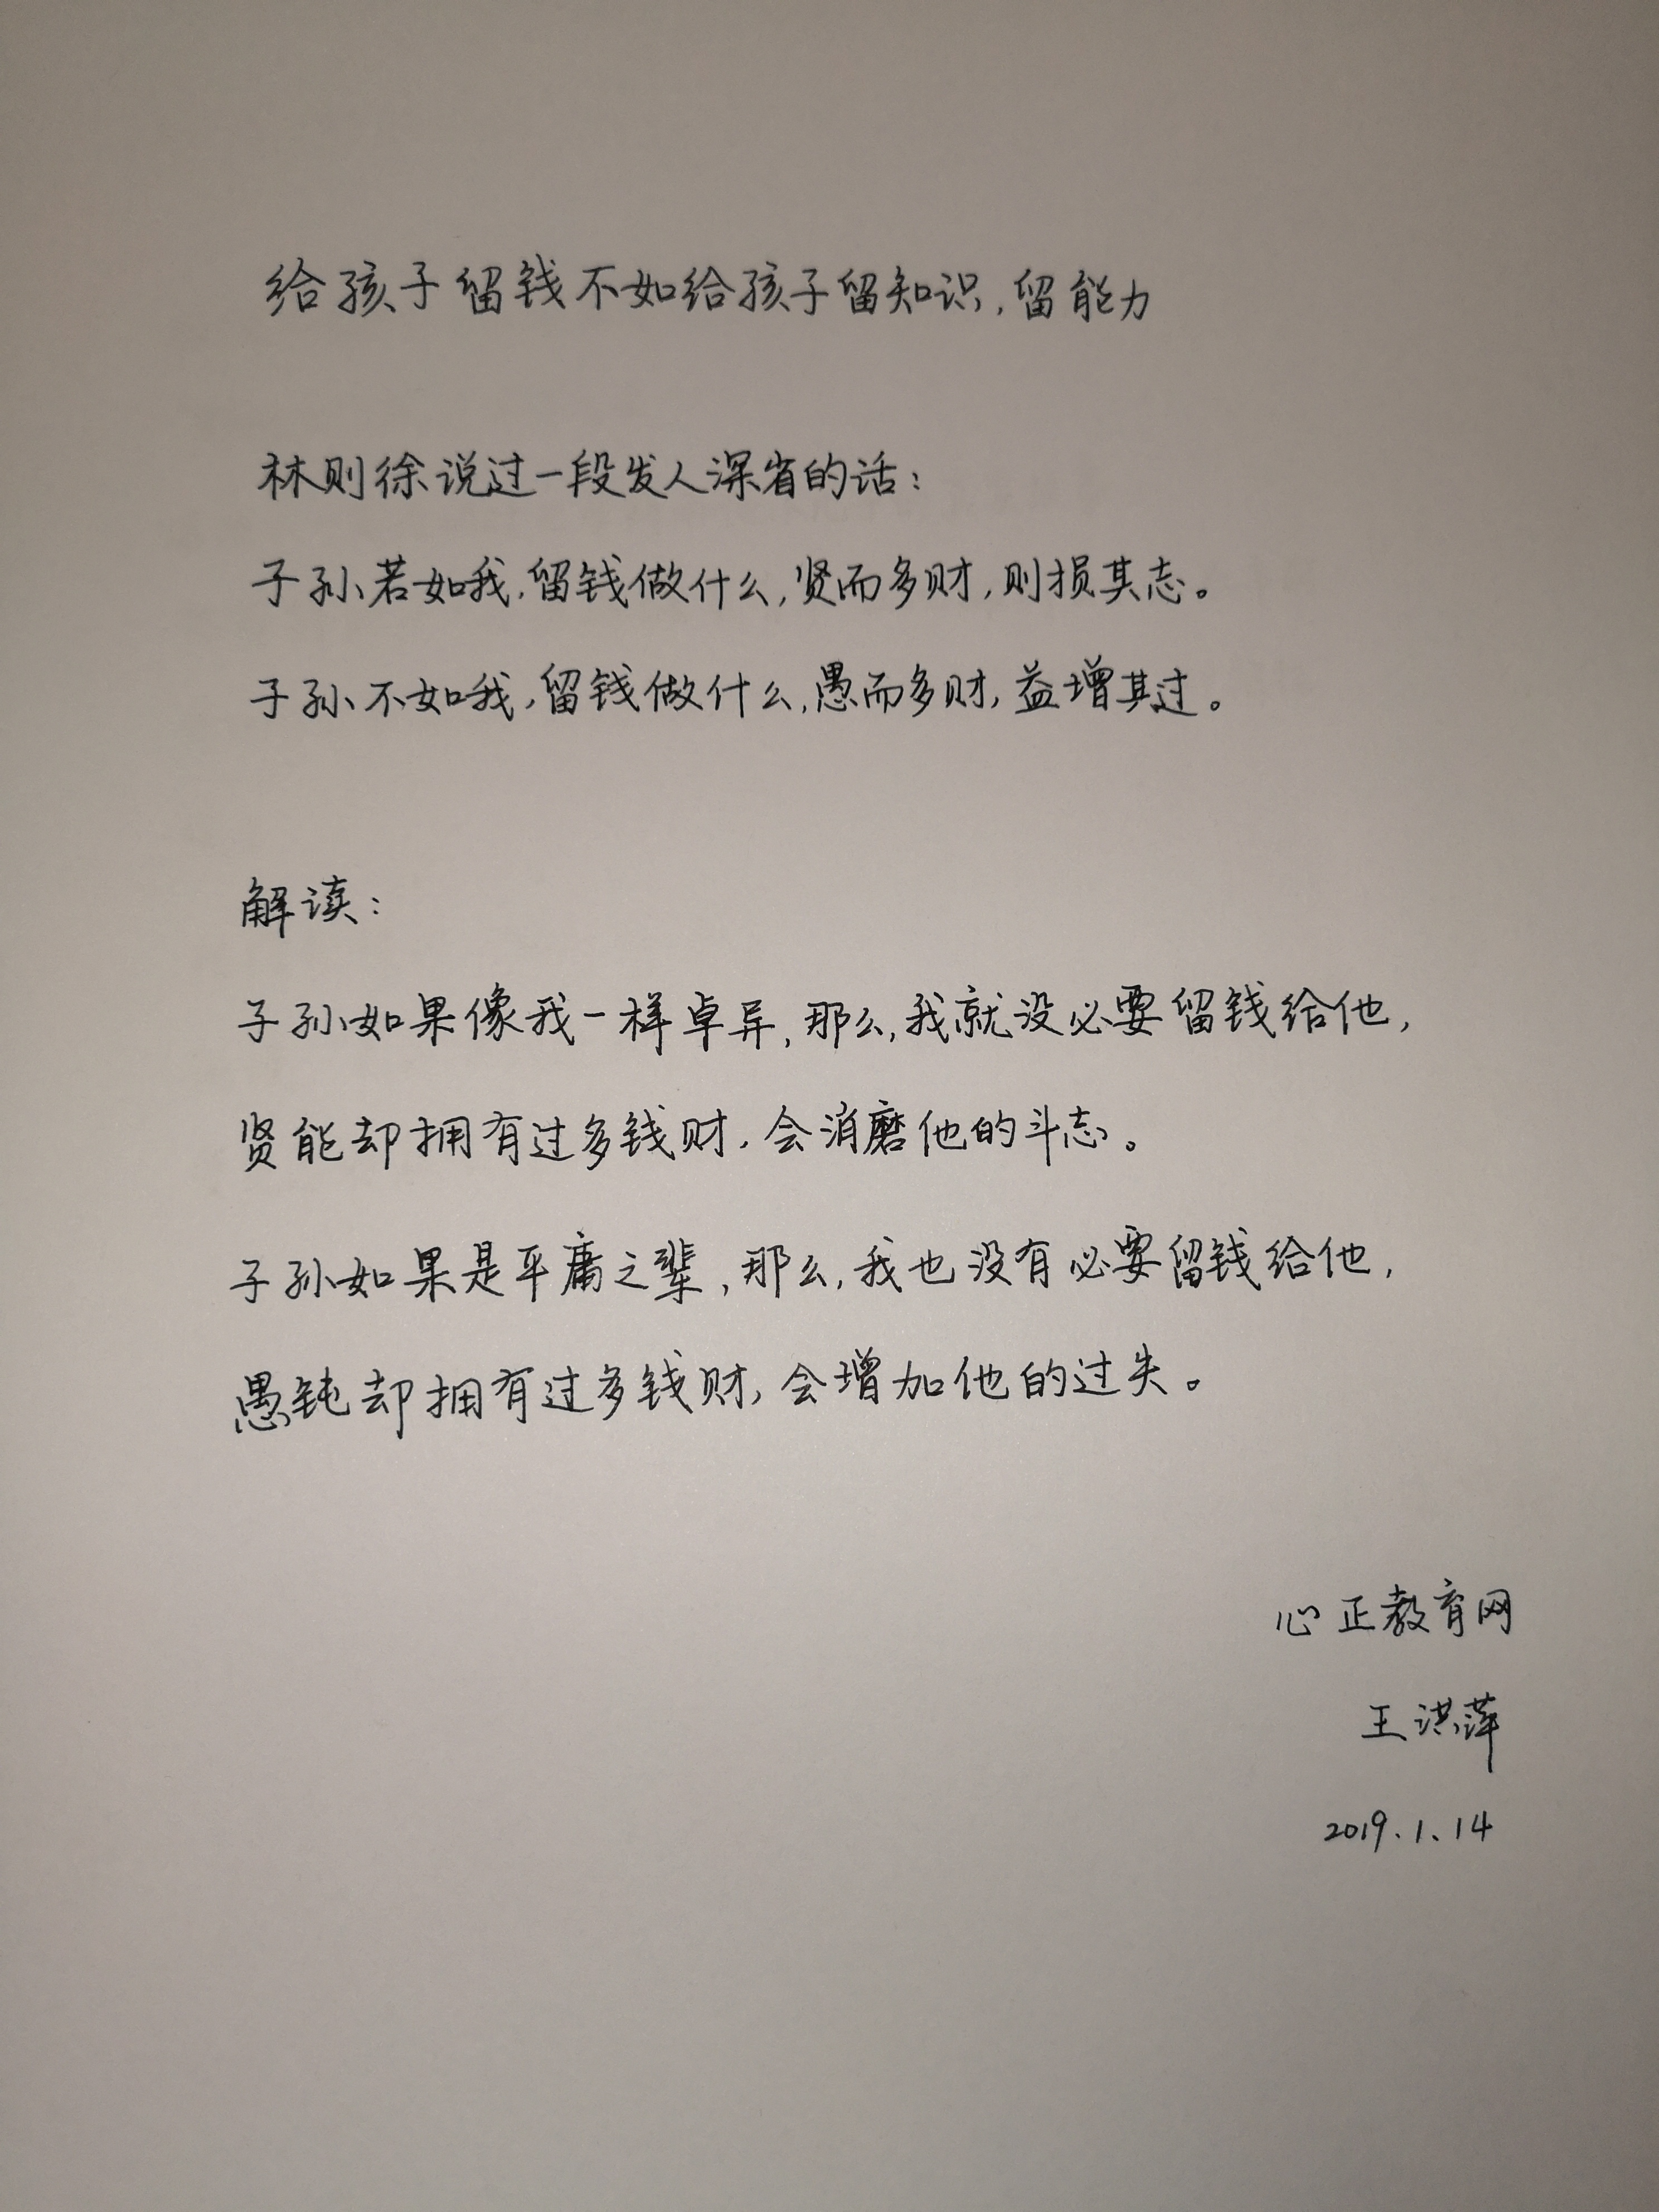 给孩子留钱不如给孩子留知识,留能力
林则徐说过一段发人深省的话:
子孙若如我,留钱做什么,贤而多财,则损其志。
子孙不如我,留钱做什么,愚而多财,益增其过。
解读:
子孙如果像我一样卓异,那么,我就没必要留钱给他,
贤能却拥有过多钱财,会消磨他的斗志。
子孙如果是平庸之辈,那么,我也没有必要留钱给他,
愚钝却拥有过多钱财,会增加他的过失。
心正教育网
王洪萍
2019.1.14